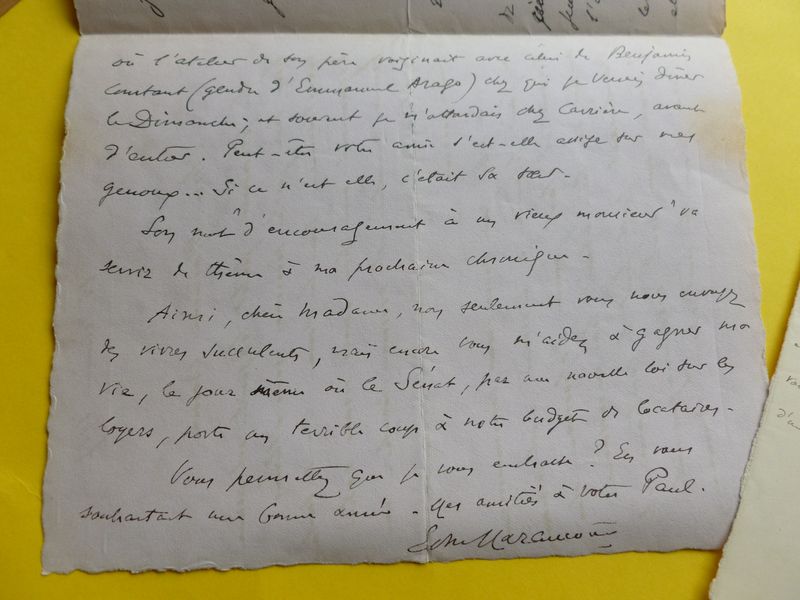 où l'atelier de son père voisinait avec celui de Benjamin
Constant (gendre d'Emmanuel Arago) chez qui je venais dîner
le Dimanche ; et souvent je m'attardais chez Carrière, avant
d'entrer. Peut-être votre amie s'est-elle assise sur mes
genoux... Si ce n'est elle, c'était sa sœur.
Son mot "d'encouragement à un vieux monsieur" va
servir de thème à ma prochaine chronique.
Ainsi, chère Madame, non seulement vous nous envoyez
des vivres succulents, mais encore vous m'aidez à gagner ma
vie, le jour même où le Sénat, par une nouvelle loi sur les
loyers, porte un terrible coup à notre budget de locataires.
Vous permettez que je vous embrasse ? En vous
souhaitant une bonne année. Mes amitiés à votre Paul.